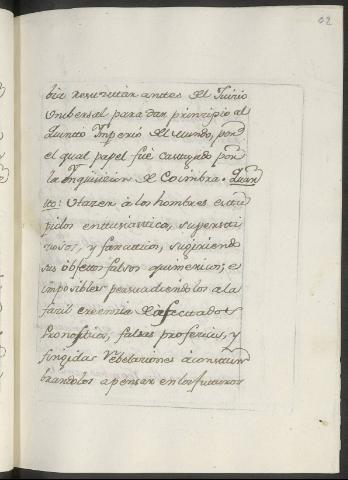 62
bia resusitàr antes del Juicio
Vnibersal para dar principio al
Quinto Imperio del mundo, por
el qual papel fuè castigado por
la Inquisicion de Coimbra. Quin
to: Hazer à los hombres estu
pidos entusiastico, supersti
ziosos, y fanaticos, sugiriendo
sus obfetos falsos quimericos; e
imposibles persuadiendolos a la
fazil creencia de afectados
Pronosticos, falsas profecias, y
fingidas Rebelaciones aconstum
brandolos a pensar en los futuros